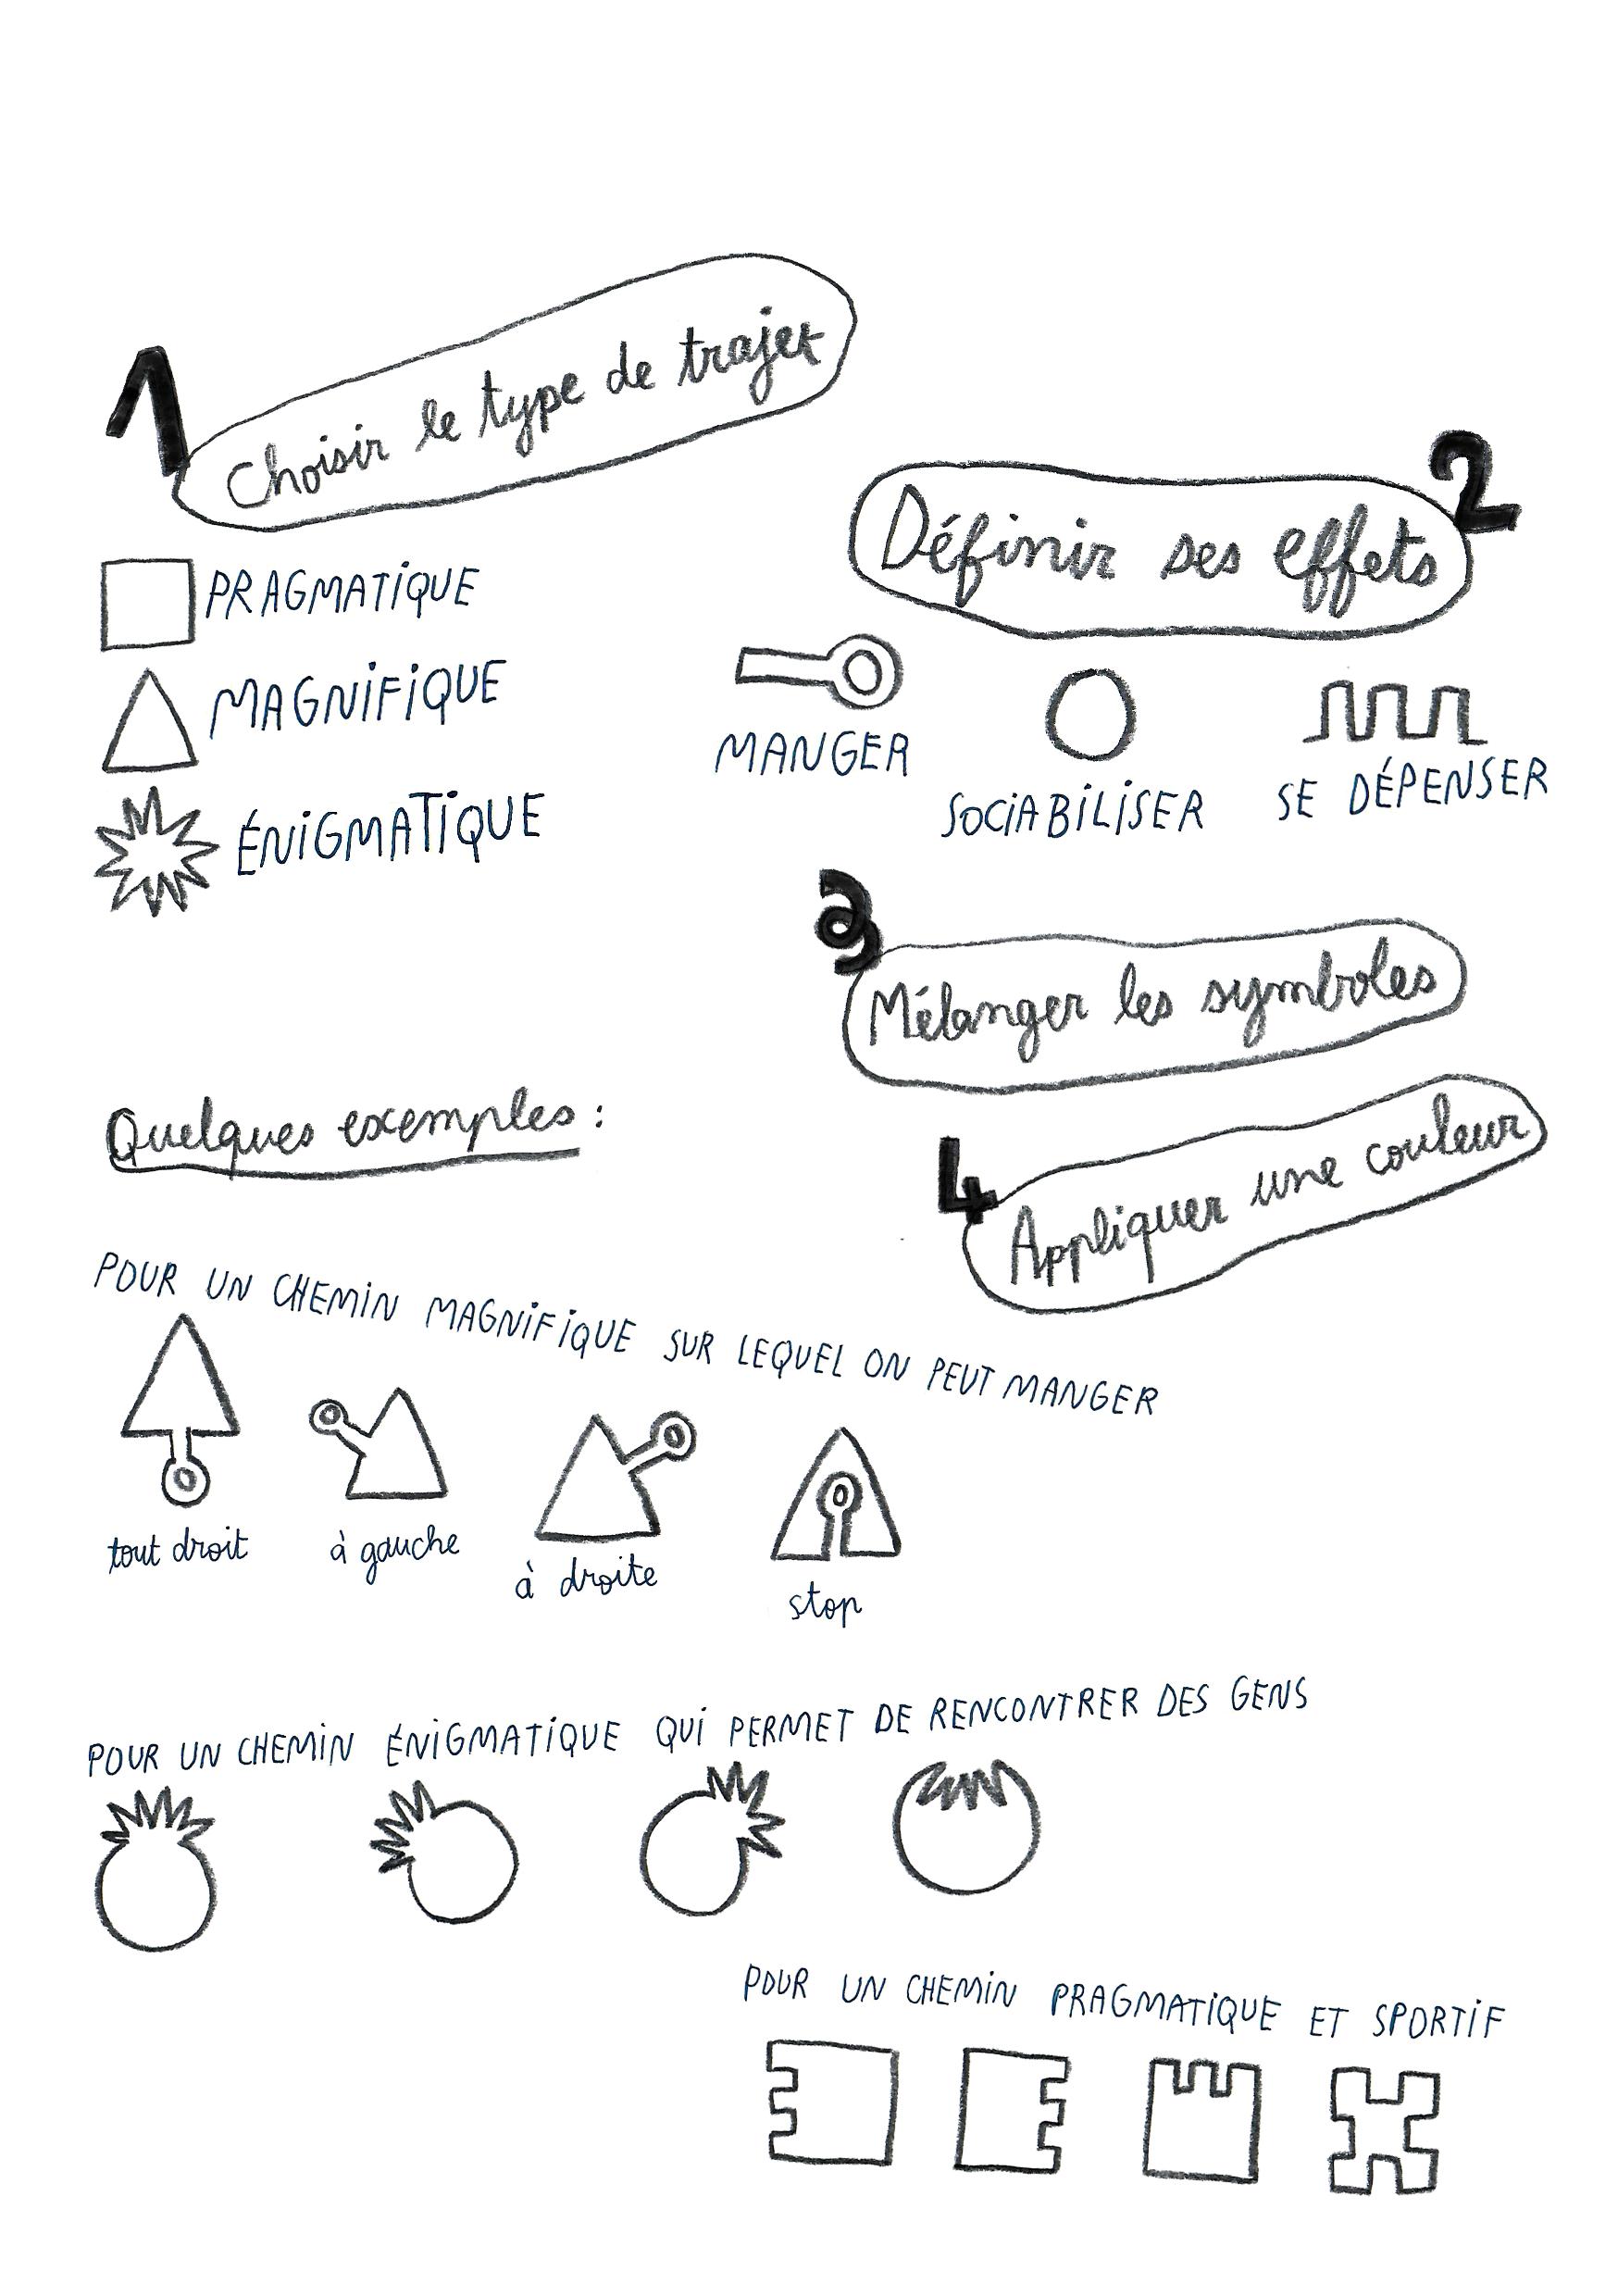 1
Choisir le type de trajet
PRAGMATIQUE
MAGNIFIQUE
ÉNIGMATIQUE
2
Définir ses effets
MANGER
SOCIABILISER
SE DÉPENSER
3
Mélanger les symboles
4
Appliquer une couleur
Quelques exemples :
POUR UN CHEMIN MAGNIFIQUE SUR LEQUEL ON PEUT MANGER
tout droit
à gauche
à droite
stop
POUR UN CHEMIN ÉNIGMATIQUE QUI PERMET DE RENCONTRER DES GENS
POUR UN CHEMIN PRAGMATIQUE ET SPORTIF